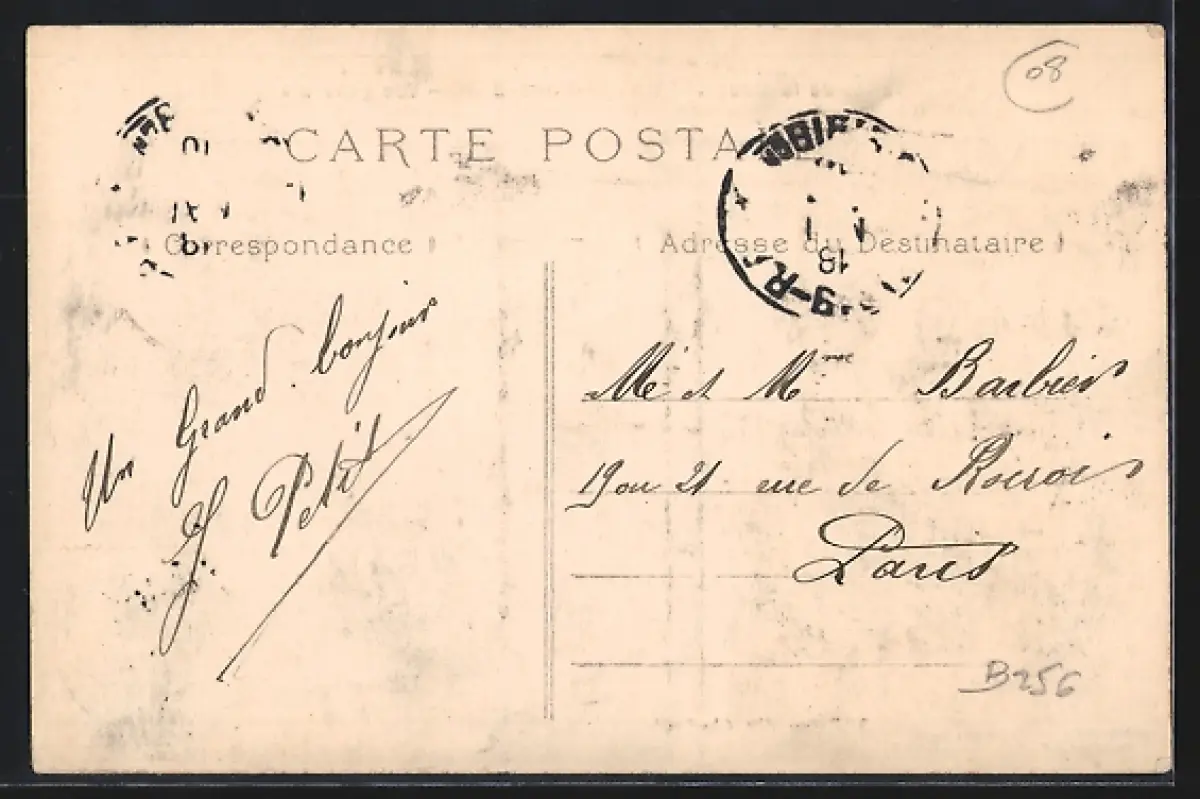 08
CARTE POSTALE
Correspondance
Adresse du Destinataire
Un Grand bonjour
J. Petit
Mr et Mme Barbier
19 ou 21 rue de Rocroi
Paris
B256